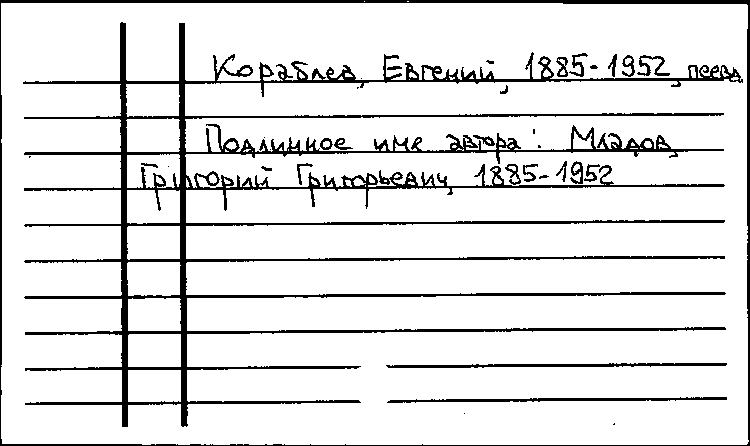 Кораблев, Евгений, 1885-1952, псевд.
Подлинное имя автора: Младов,
Григорий Григорьевич, 1885-1952